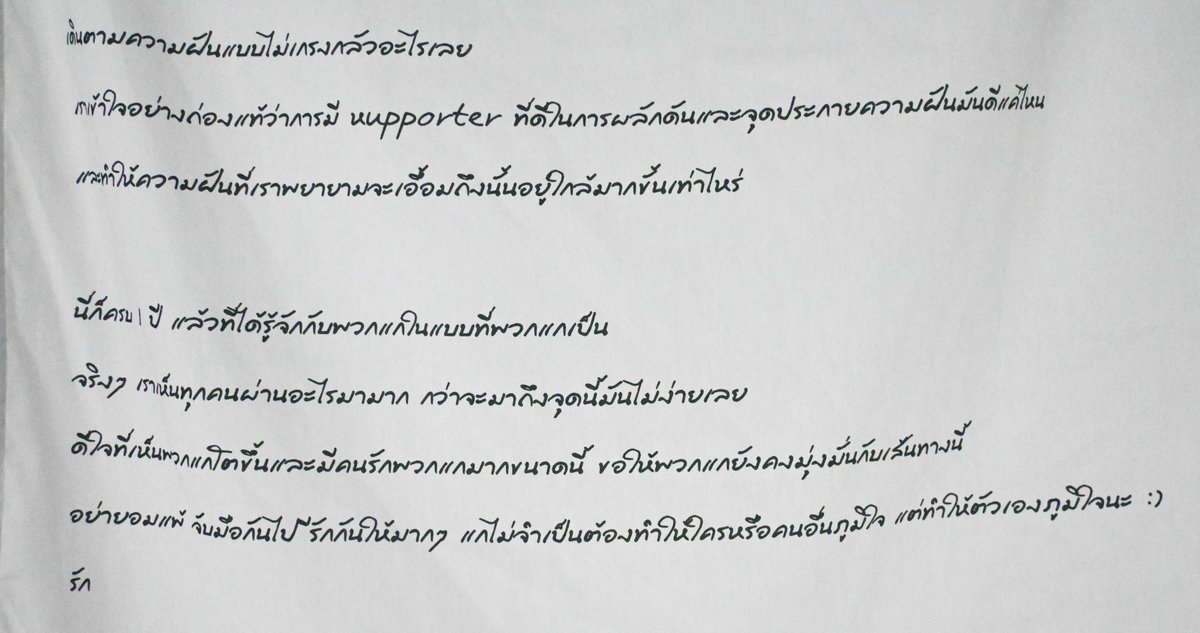 เดินตามความฝันแบบไม่เกรงกลัวอะไรเลย
เราเข้าใจอย่างถ่องแท้ว่าการมี supporter ที่ดีในการผลักดันและจุดประกายความฝันมันดีแค่ไหน
และทำให้ความฝันที่เราพยายามจะเอื้อมถึงนั้นอยู่ใกล้มากขึ้นเท่าไหร่
นี่ก็ครบ 1 ปี แล้วที่ได้รู้จักกับพวกแกในแบบที่พวกแกเป็น
จริงๆ เราเห็นทุกคนผ่านอะไรมามาก กว่าจะมาถึงจุดนี้มันไม่ง่ายเลย
ดีใจที่เห็นพวกแกโตขึ้นและมีคนรักพวกแกมากขนาดนี้ ขอให้พวกแกยังคงมุ่งมั่นกับเส้นทางนี้
อย่ายอมแพ้ จับมือกันไป รักกันให้มากๆ แกไม่จำเป็นต้องทำให้ใครหรือคนอื่นภูมิใจ แต่ทำให้ตัวเองภูมิใจนะ :)
รัก